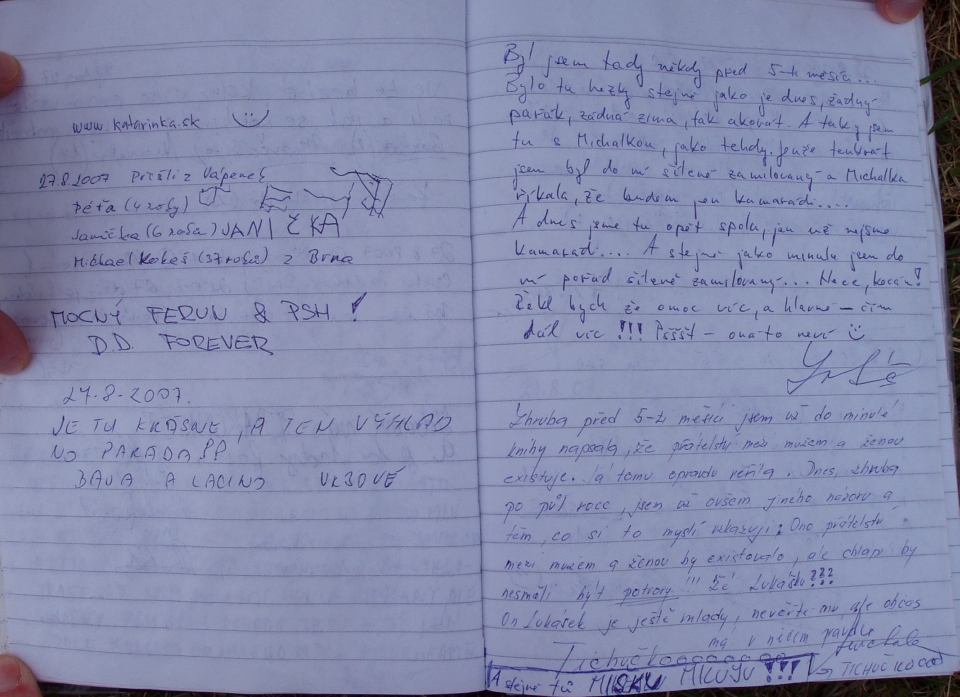 www.katarinka.sk
27.8.2007 Přišli z Vápenek
Péťa (4 roky)
Janička (6 roků) JANIČKA
Michael Kokeš (37 roků) z Brna
MOCNÝ FERUN & PSH !
D.D. FOREVER
27.8.2007.
JE TU KRÁSNE, A TEN VÝHĽAD
NO PARÁDA
BAVA A LACINO VRBOVÉ
Byl jsem tady někdy před 5-ti měsíci...
Bylo tu hezky stejně jako je dnes, žádný
pařák, žádná zima, tak akorát. A taky jsem
tu s Michalkou, jako tehdy. Jenže tenkrát
jsem byl do ní šíleně zamilovaný a Michalka
říkala, že budem jen kamarádi....
A dnes jsme tu opět spolu, jen už nejsme
kamarádi.... A stejně jako minule jsem do
ní pořád šíleně zamilovaný... Neee, kecám!
Řekl bych že o moc víc, a hlavně - čím
dál víc !!! Pšššt - ona to neví
Zhruba před 5-ti měsíci jsem už do minulé
knihy napsala, že přátelství mezi mužem a ženou
existuje. Já tomu opravdu věřila. Dnes, zhruba
po půl roce, jsem už ovšem jiného názoru a
těm, co si to myslí vzkazuji: Ono přátelství
mezi mužem a ženou by existovalo, ale chlapi by
nesměli být potvory!!! Žé Lukášku???
On Lukášek je ještě mladý, nevěřte mu, ale občas
má v něčem pravdu
Tichučkoooooooo
A stejně tu MIŠKU MILUJU !!! TICHUČKOOO